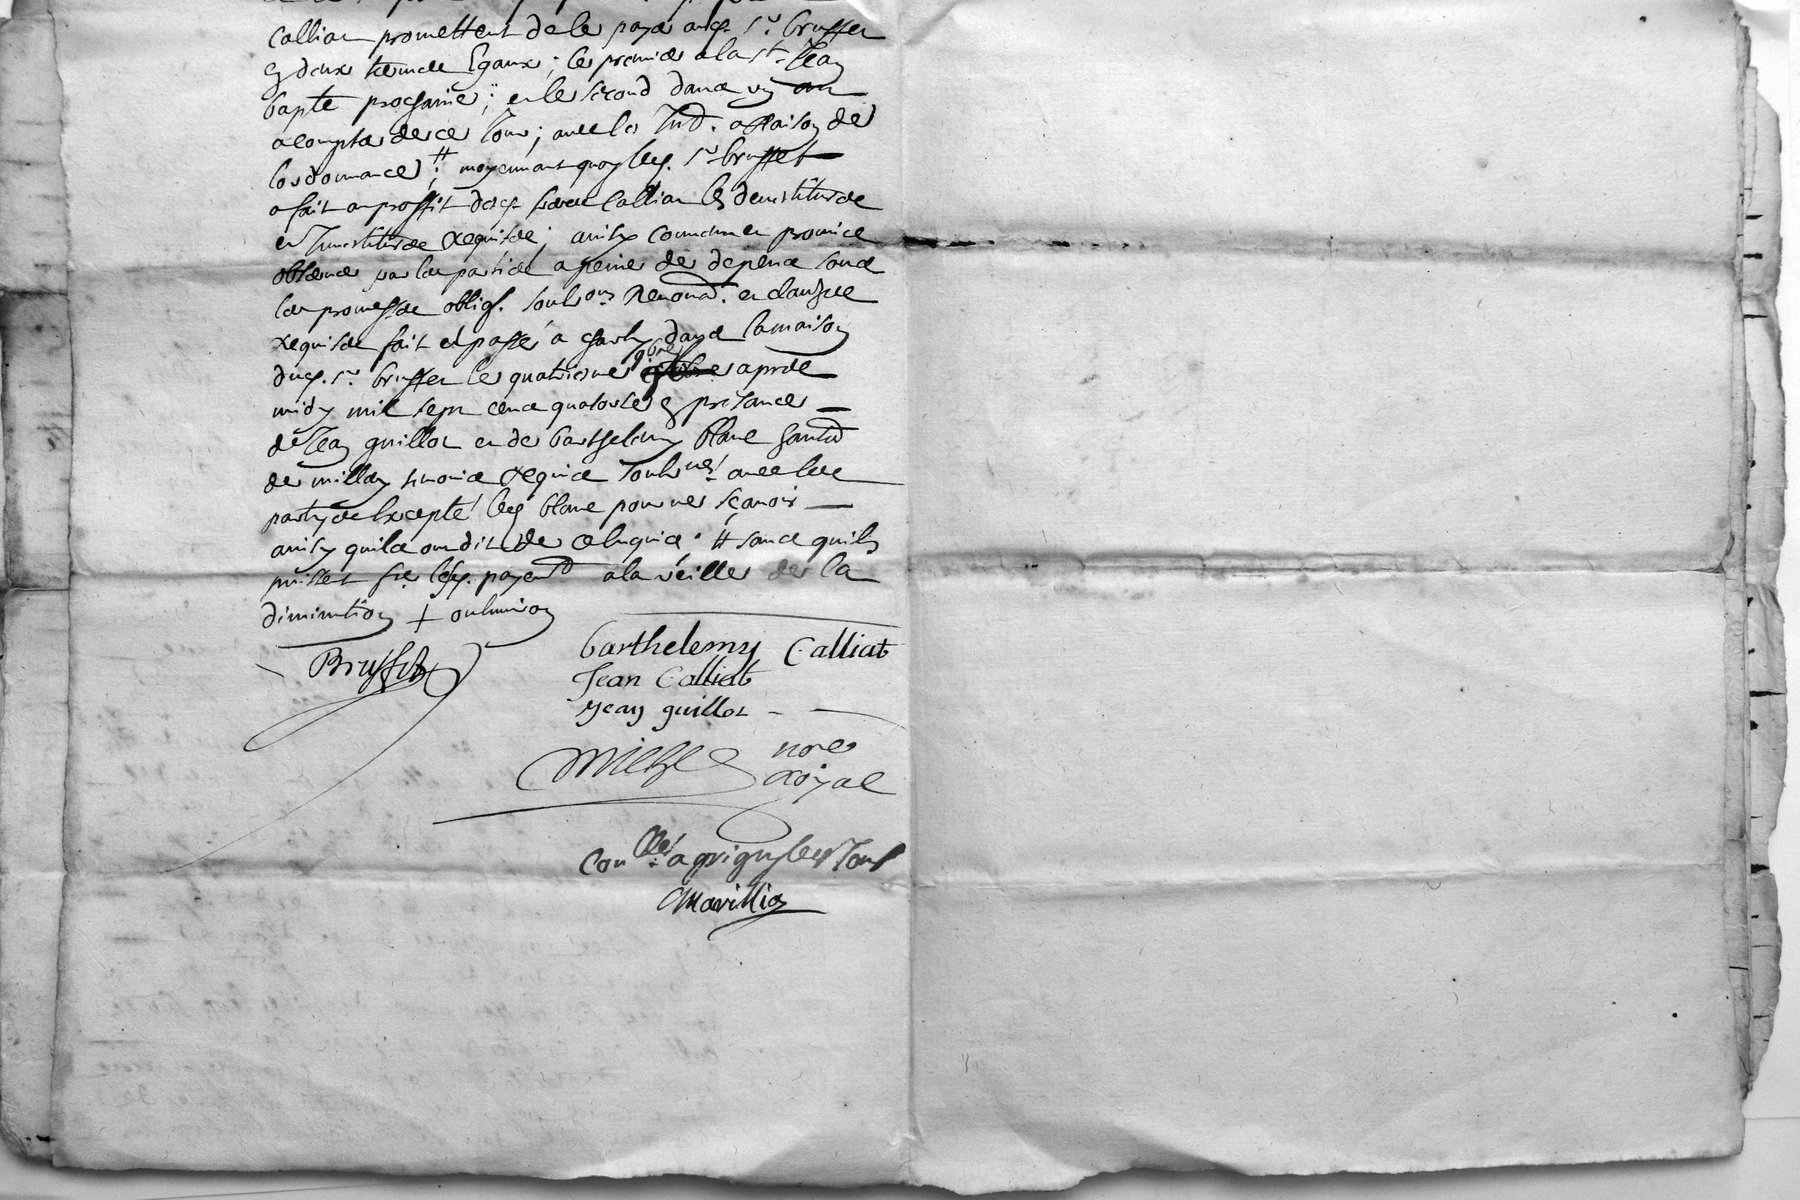 Calliat promettent de le payer audt. sr. brusset
en deux termes Egaux; le premier a la st. Jean
bapte prochaine; et le second dans un an
a compter de ce Jour; avec les Intd. a Raison de
lordonnance; # moyennant quoy led. sr brusset
a fait au proffit desd. freres Calliat les devestitures
et Investitures Requises; ainsy convenu et promis
observer par les parties a peine de depens sous
les promesses oblig. soubmons Renond. et clauses
requises fait et passé a charly dans la maison
dud. sr. brusset le quatrieme 9bre apres
midy mil sept cens quatorse en presance
de Jean guillot et de barthelemy blanc habtd
de millery temoins Requis soubnes avec les
partyes Excepté led blanc pour ne sçavoir
ainsy quil a ont dit de ce Enquis . # sans quils
puissent fre lesd. payentd a la veille de la
diminution + ou hui on
Brusset
barthelemy Calliat
Jean Calliat
Jean guillot
nore
Royal
Conlle a grigny led Jour